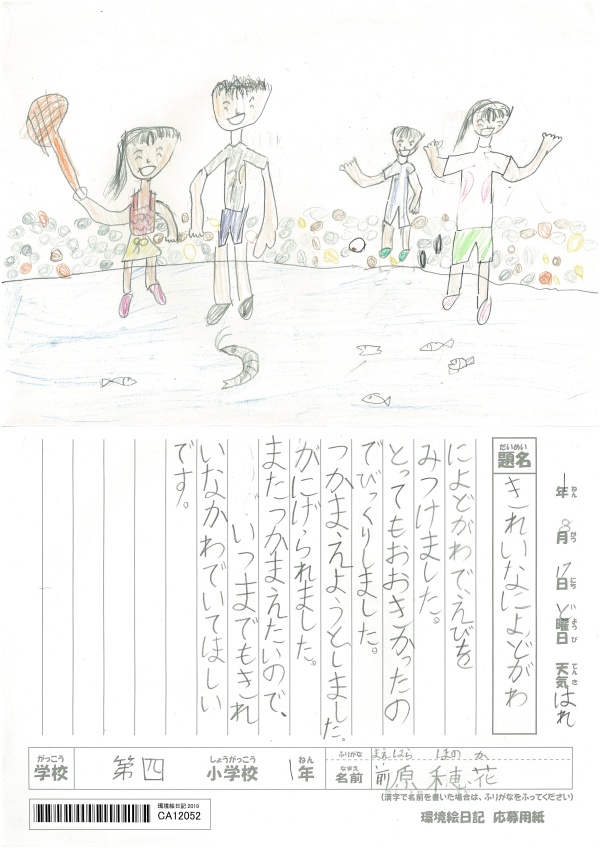 1年 8月 17日 ど曜日 天気 はれ
ねん がつ にち ようび てんき
だいめい
題名 きれいなによどがわ
によどがわで、えびを
みつけました。
とってもおおきかったの
でびっくりしました。
つかまえようとしました
がにげられました。
またつかまえたいので、
いつまでもきれ
いなかわでいてほしい
です。
がっこう しょうがっこう ねん ふりがな まえはら ほのか
学校 第四 小学校 1年 なまえ 名前 前原 穂花
(漢字で名前を書いた場合は、ふりがなをふってください)
環境絵日記 2019
CA12052
環境絵日記 応募用紙